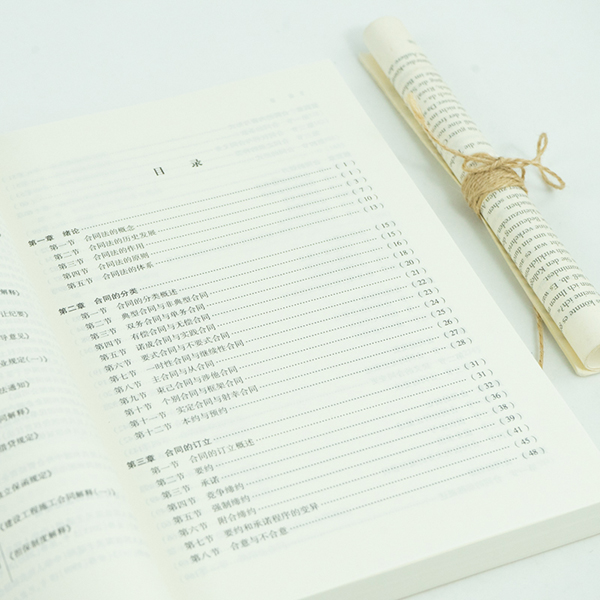 目 录
第一章 绪论 (1)
第一节 合同法的概念 (1)
第二节 合同法的历史发展 (3)
第三节 合同法的作用 (7)
第四节 合同法的原则 (10)
第五节 合同法的体系 (13)
第二章 合同的分类 (15)
第一节 合同的分类概述 (15)
第二节 典型合同与非典型合同 (16)
第三节 双务合同与单务合同 (18)
第四节 有偿合同与无偿合同 (20)
第五节 诺成合同与实践合同 (21)
第六节 要式合同与不要式合同 (22)
第七节 一时性合同与继续性合同 (23)
第八节 主合同与从合同 (24)
第九节 束己合同与涉他合同 (25)
第十节 个别合同与框架合同 (26)
第十一节 实定合同与射幸合同 (27)
第十二节 本约与预约 (28)
第三章 合同的订立 (31)
第一节 合同的订立概述 (31)
第二节 要约 (32)
第三节 承诺 (36)
第四节 竞争缔约 (38)
第五节 强制缔约 (39)
第六节 附合缔约 (41)
第七节 要约和承诺程序的变异 (45)
第八节 合意与不合意 (48)
解释》
纪要》
意见》
业规定(一)》
法通知》
同解释》
借贷规定》
立保函规定》
《建设工程施工合同解释(一)》
《担保制度解释》